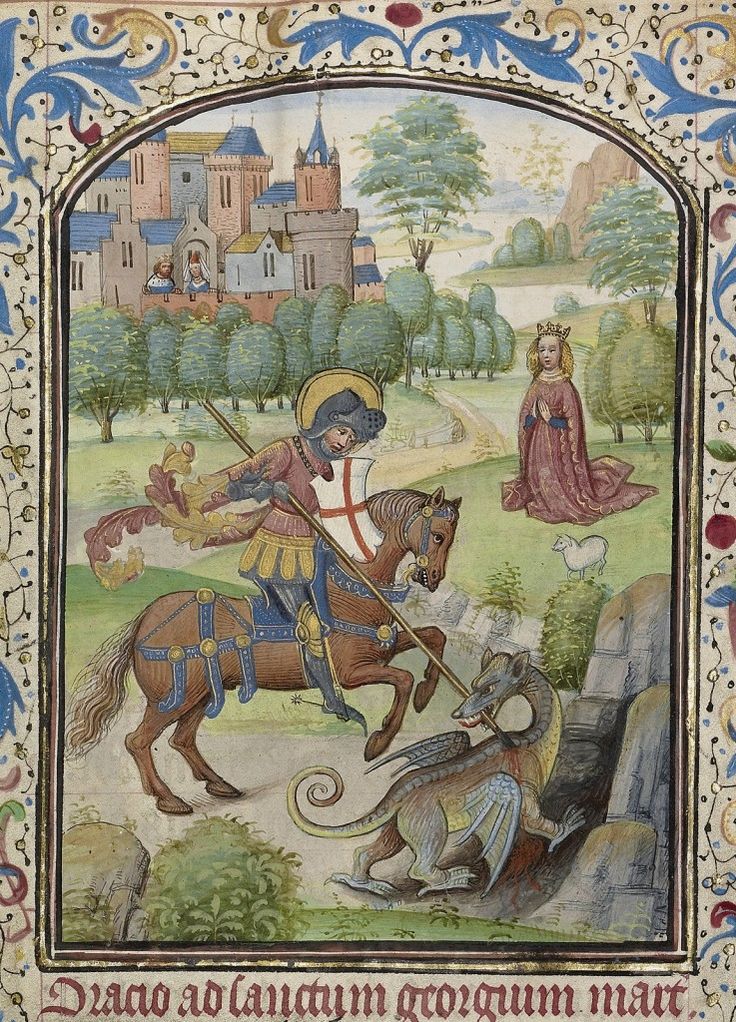 Oracio ad sanctum georgium mart.